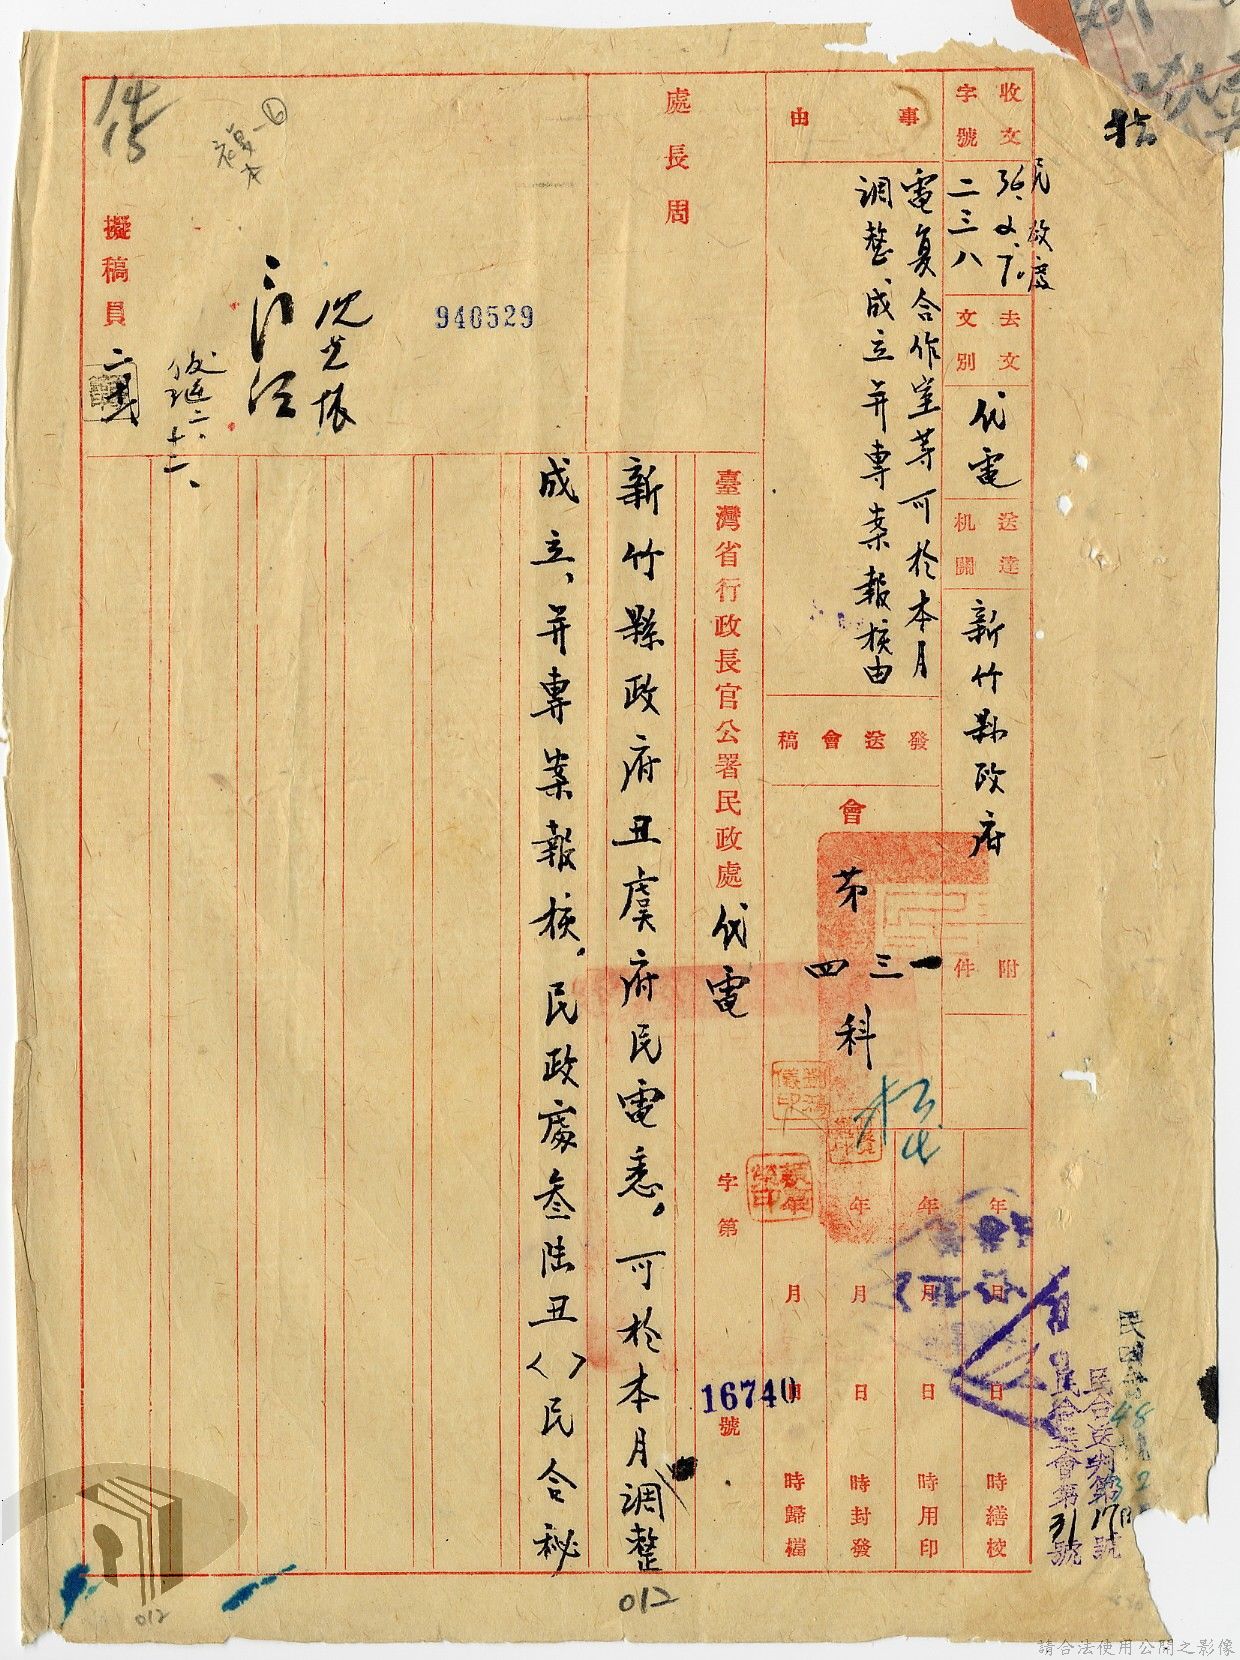 收文
字號
36.2.
二三八
去文
文別
代電
送達
机關
新竹縣政府
附
件
事
由
電复合作室等可於本月
調整、成立并專案報核由
發送會稿
會
第
一
三
四
科
年月日時繕校
年月日時用印
年月日時封發
年月日時歸檔
臺灣省行政長官公署民政處代電
字第
16740
號
處長周
新竹縣政府丑虞府民電悉。可於本月調整
成立、并專案報核。民政處叁陆丑〈〉民合秘
940529
擬稿員
二、十二、
民合送判第17號
民合送會第31號
012
012
請合法使用公開之影像